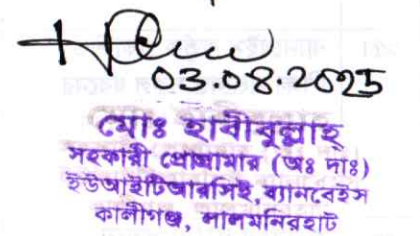 03.08.2025
মোঃ হাবীবুল্লাহ্
সহকারী প্রোগ্রামার (অঃ দাঃ)
ইউআইটিআরসিই, ব্যানবেইস
কালীগঞ্জ, লালমনিরহাট